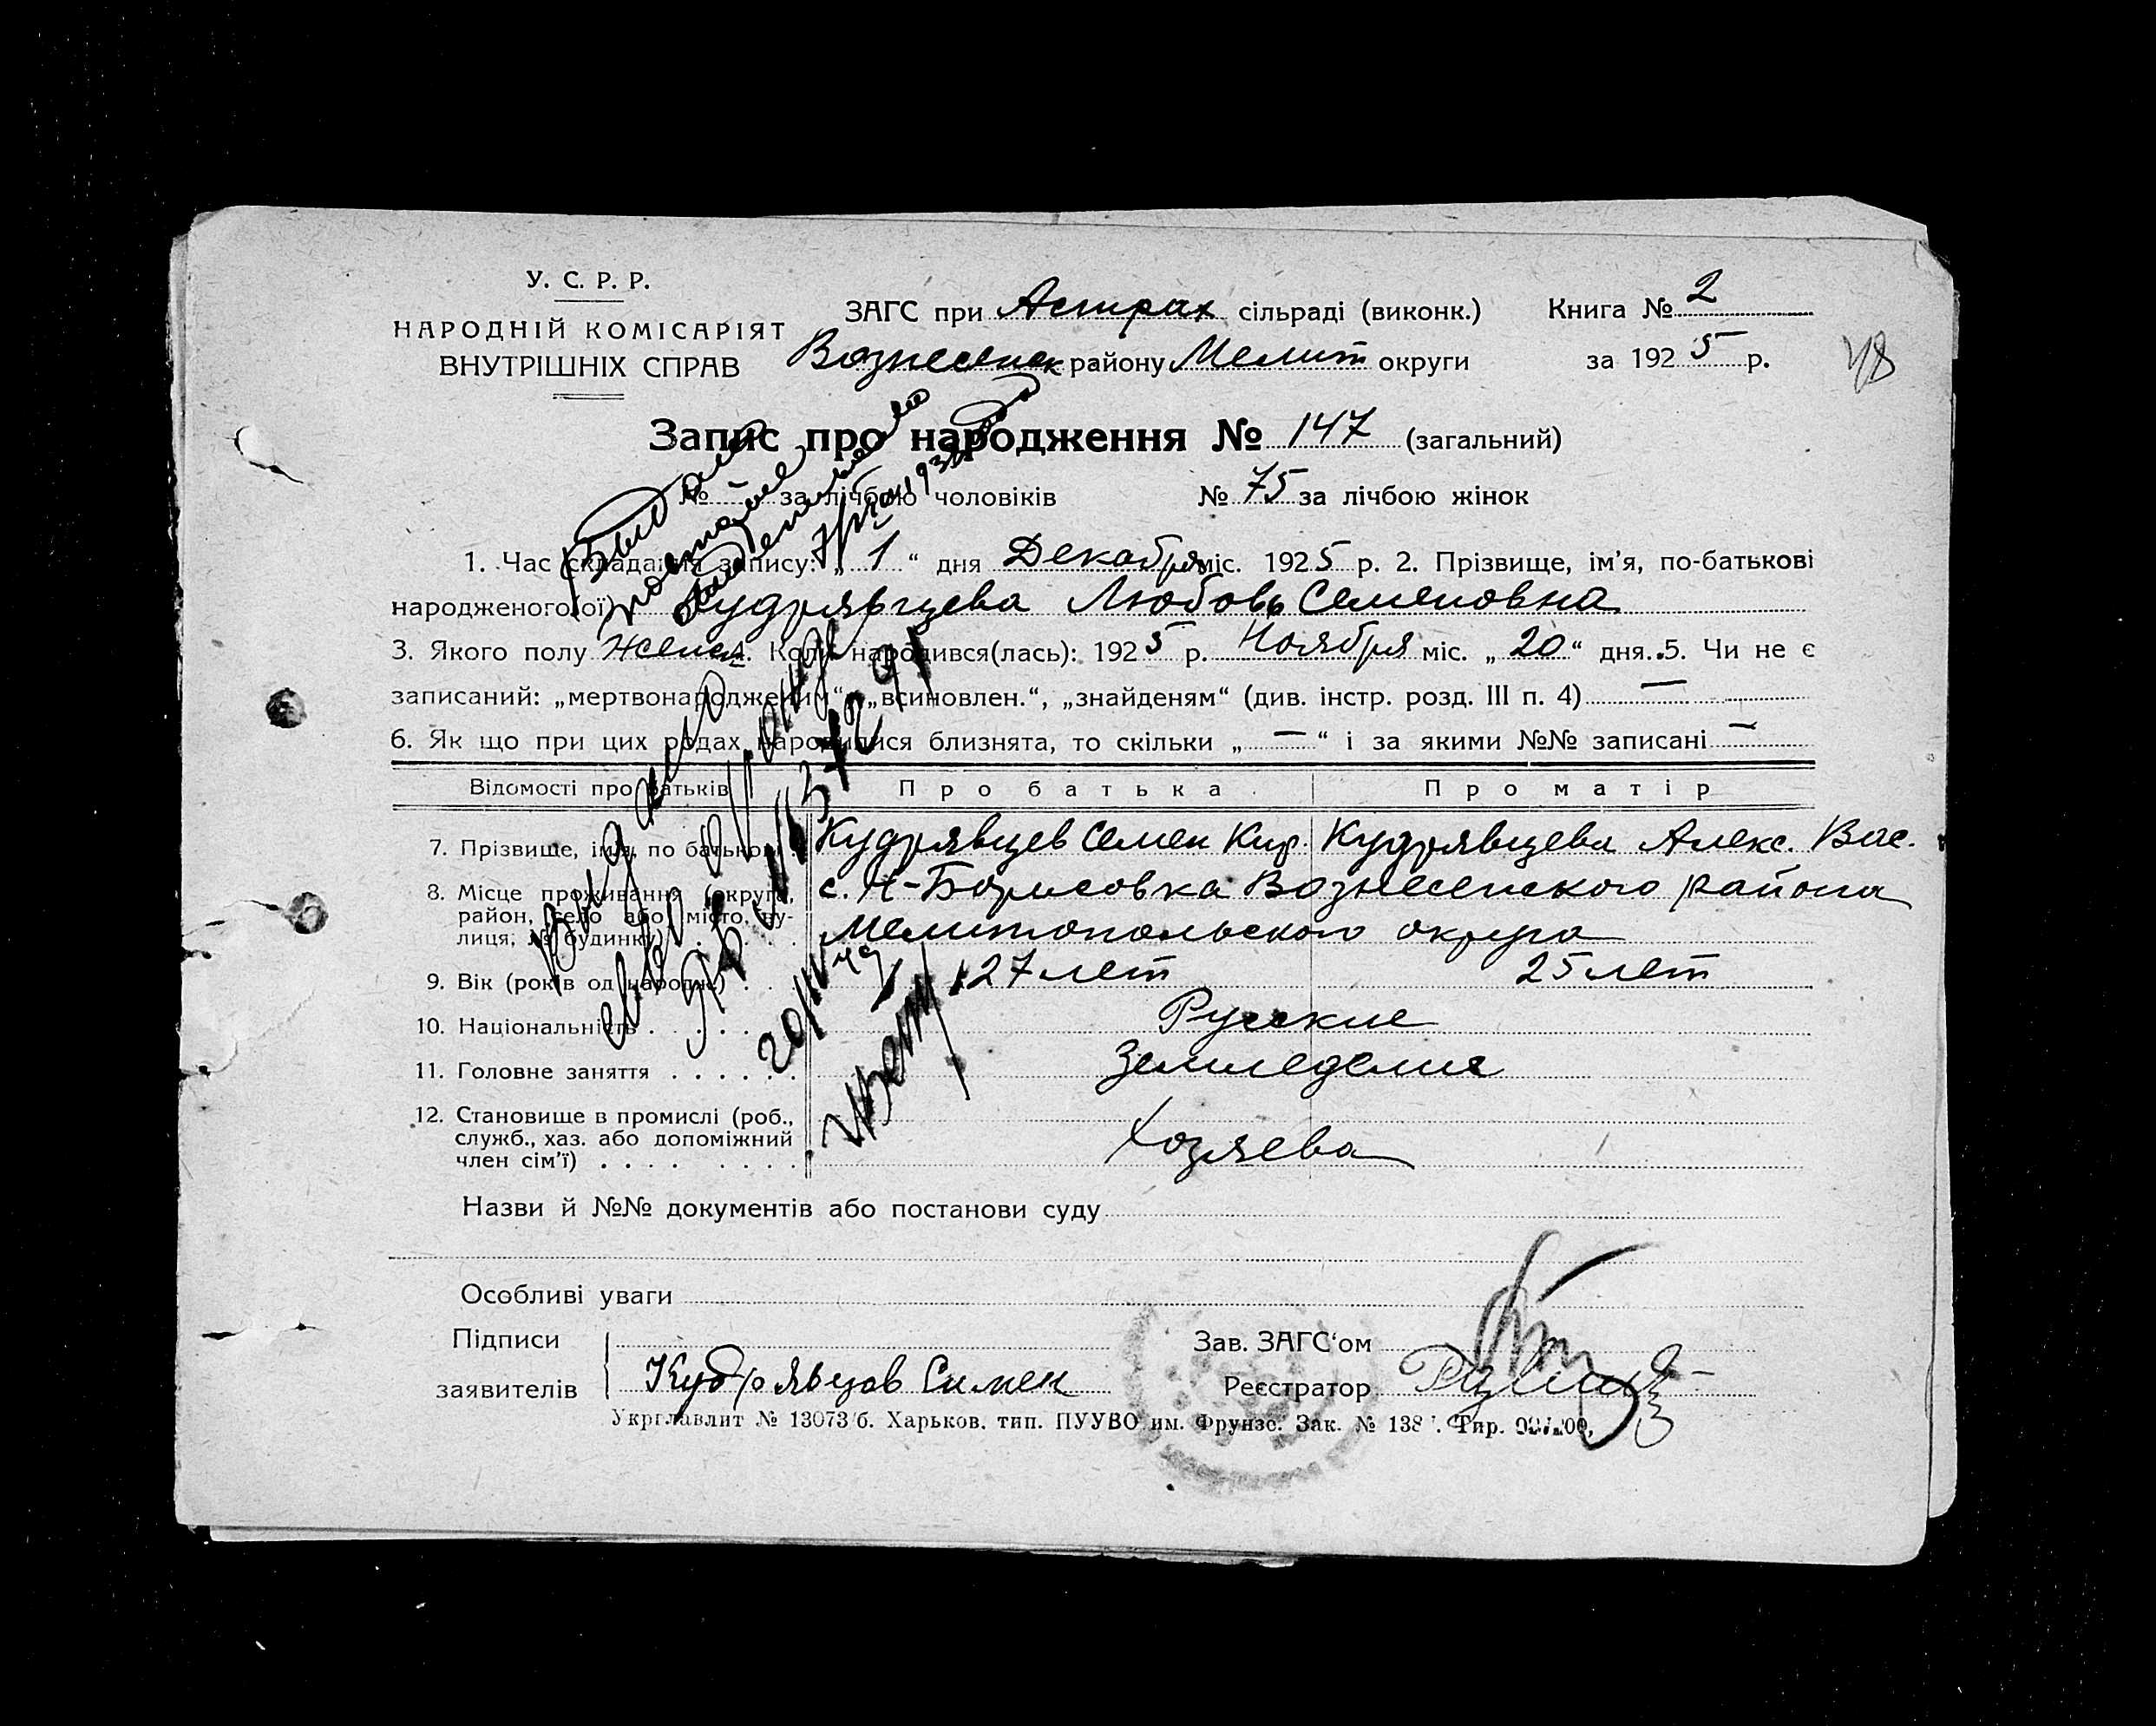 У. С. Р. Р.
НАРОДНІЙ КОМІСАРІЯТ
ВНУТРІШНІХ СПРАВ
ЗАГС при Астрах сільраді (виконк.)
Вознесенск району Мелит округи
Книга № 2
за 1925 р.
48
Запис про народження № 147 (загальний)
№ за лічбою чоловіків № 75 за лічбою жінок
1. Час складання запису: „1“ дня Декабря міс. 1925 р. 2. Прізвище, ім'я, по-батькові
народженого(ої) Кудрявцева Любовь Семеновна
3. Якого полу Женск 4. Коли народився(лась): 1925 р. Ноября міс. „20“ дня. 5. Чи не є
записаний: „мертвонародженим“, „всиновлен.“, „знайденям“ (див. інстр. розд. III п. 4) —
6. Як що при цих родах народилися близнята, то скільки „—“ і за якими №№ записані —
Відомості про батьків Про батька Про матір
7. Прізвище, ім'я, по батькові Кудрявцев Семен Кир. Кудрявцева Алекс. Вас.
8. Місце проживання (округа, с. Н-Борисовка Вознесенского района
район, село або місто, ву-
лиця, № будинку) Мелитопольского округа
9. Вік (років од народж.) 27 лет 25 лет
10. Національність Русские
11. Головне заняття Земледелие
12. Становище в промислі (роб.,
служб., хаз. або допоміжний
член сім'ї) Хозяева
Назви й №№ документів або постанови суду
Особливі уваги
Підписи
заявителів Кудрявцов Симен
Зав. ЗАГС'ом
Реєстратор
Укрглавлит № 13073/б. Харьков, тип. ПУУВО им. Фрунзе. Зак. № 138 Тир.
Выдано
повторное
Выдано